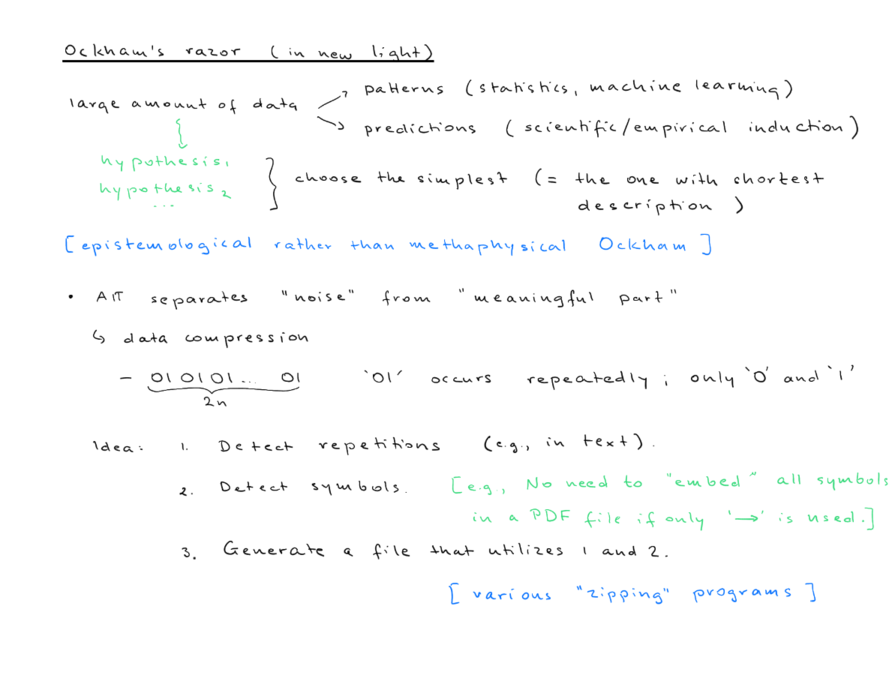 Ockham's razor (in new light)
large amount of data
patterns (statistics, machine learning)
predictions (scientific/empirical induction)
hypothesis 1
hypothesis 2
...
choose the simplest (= the one with shortest
description)
[epistemological rather than methaphysical Ockham]
• AIT separates "noise" from "meaningful part"
↳ data compression
- 010101... 01 '01' occurs repeatedly; only '0' and '1'
2n
Idea: 1. Detect repetitions (e.g., in text).
2. Detect symbols. [e.g, No need to "embed" all symbols
in a PDF file if only '→' is used.]
3. Generate a file that utilizes 1 and 2.
[various "zipping" programs]